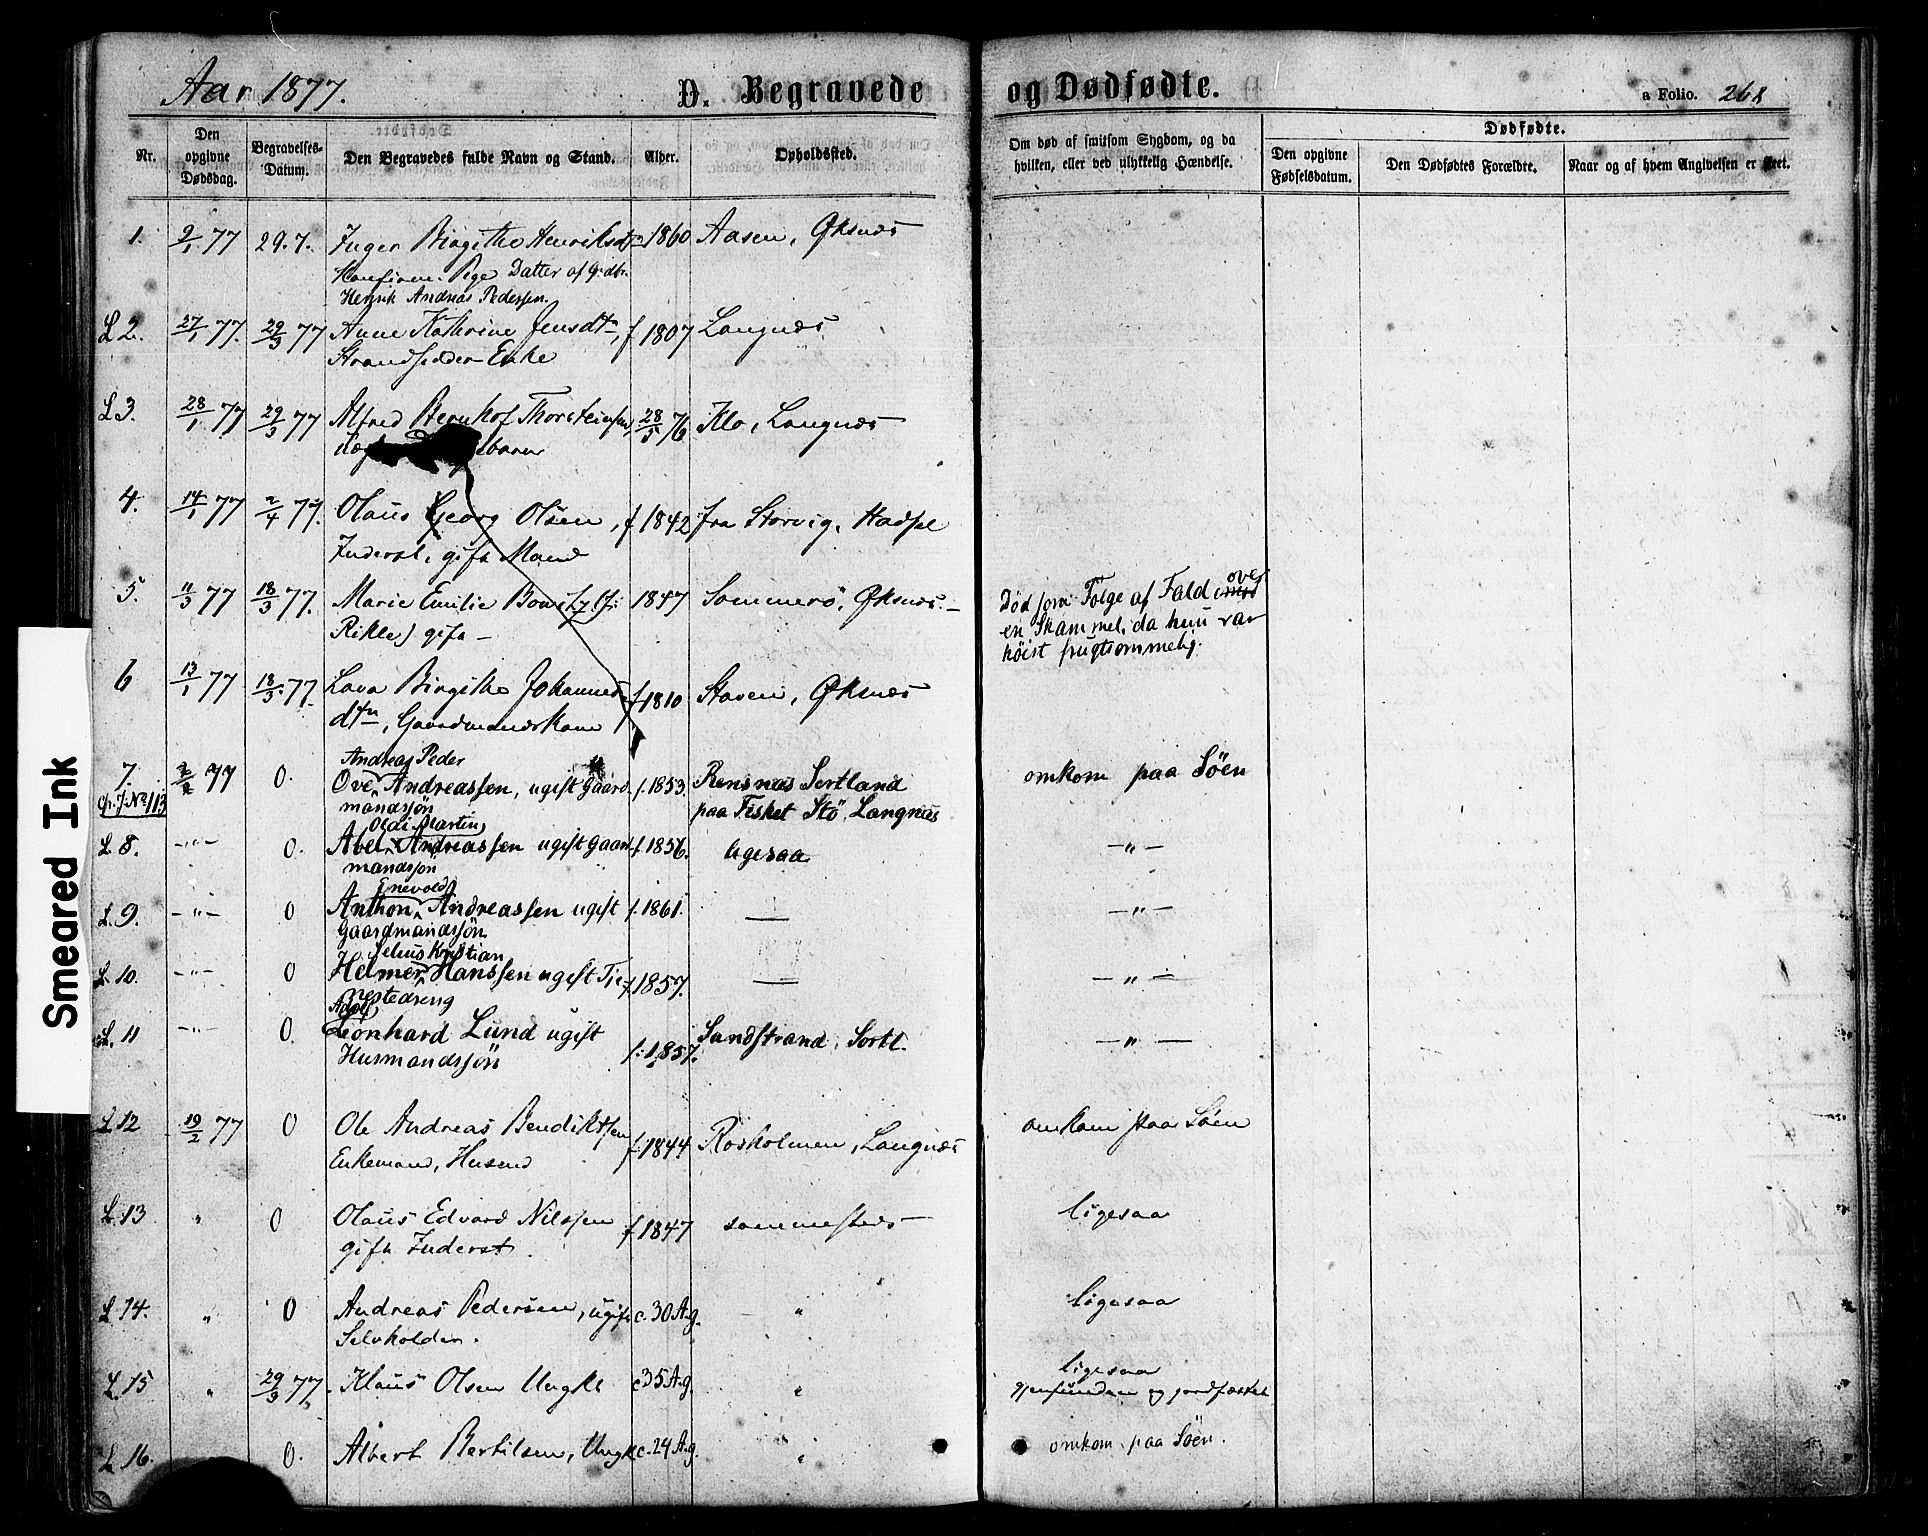 Aar 1877.
D. Begravede og Dødfødte.
a Folio. 268
Nr.
Den opgivne Dødsdag.
Begravelses-Datum.
Den Begravedes fulde Navn og Stand.
Alder.
Opholdssted.
Om død af smitsom Sygdom, og da hvilken, eller ved ulykkelig Hændelse.
Dødfødte.
Den opgivne Fødselsdatum.
Den Dødfødtes Forældre.
Naar og af hvem Angivelsen er skeet.
1. 9/1 77 29. 7. Inger Birgithe Henriksdtr 1860 Aasen, Øksnæs
Konfirm. Pige Datter af Grdbr.
Henrik Andreas Pedersen.
L 2. 27/1 77. 29/3 77 Anne Kathrine Jensdtr, f 1807 Langnæs
Strandsidder Enke
L 3. 28/1 77 29/3 77 Alfred Bernhof Thorsteinsen, 28/5 76 Klo, Langnæs
4. 14/1 77 2/4 77. Olaus Georg Olsen, f 1842 fra Storvig, Hadsel
Inderst, gift Mand
5. 11/3 77 18/3 77. Marie Emilie 1847 Sommerø, Øksnæs. Død som Følge af Fald over
Rikle) gift en Skammel, da hun var
høist frugtsommelig.
6 13/1 77 18/3 77. Lava Birgithe Johannes- f 1810 Staven, Øksnæs
dtr, Gaardmandskone
Andreas Peder
7. 2/2 77 0. Ove Andreassen, ugift Gaard- f. 1853. Rensnæs Sortland omkom paa Søen
No 113 mandssøn paa Fisket Stø, Langnæs
Oldi Martin
L 8. -"- 0. Abel Andreassen ugift Gaard- f. 1856. ligesaa -"-
mandssøn
Enevold
L 9. -"- 0 Anthon Andreassen ugift f. 1861. -"-
Gaardmandssøn
Jelius Kristian
L. 10. -"- 0 Helmer Hanssen ugift Tje- f. 1857. -"-
nestedreng
Adolf
L. 11 -"- 0. Leonhard Lund ugift f. 1857. Sandstrand, Sortl. -"-
Husmandssøn
L 12 19/2 77 0 Ole Andreas Bendiktsen f. 1844 Rosholmen, Langnæs omkom paa Søen
Enkemand, Husmd
L. 13 " 0 Olaus Edvard Nilssen f 1847 sammesteds ligesaa
gift Inderst.
L 14. " 0 Andreas Pedersen, ugift c. 30 A.g. " ligesaa
Selvholden.
L. 15 " 29/3 77. Klaus Olsen Ungkl c 35 A.g. " ligesaa
gjenfunden og jordfæstet
L 16. 0. Albert Bertilsen, Ungk c. 24 A.g. " omkom paa Søen.
Smeared Ink